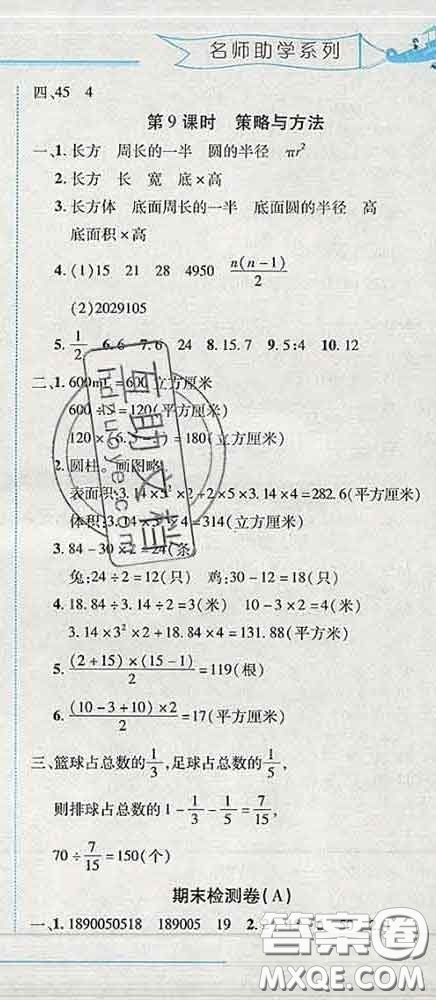 名师助学系列
四、45 4
第9课时 策略与方法
一、1. 长方 周长的一半 圆的半径 πr²
2. 长方 长 宽 底×高
3. 长方体 底面周长的一半 底面圆的半径 高
底面积×高
4. (1)15 21 28 4950 n(n-1)/2
(2)2029105
5. 1/2 6. 6 7. 6 24 8. 15.7 9. 5:4 10. 12
二、1. 600mL=600立方厘米
600÷ =120(平方厘米)
120× =180(立方厘米)
2. 圆柱 画图略
表面积:3.14×5²×2+2×5×3.14×4=282.6(平方厘米)
体积:3.14×5²×4=314(立方厘米)
3. 84-30×2=24(条)
兔:24÷2=12(只) 鸡:30-12=18(只)
4. 18.84÷3.14÷2=3(米) 10-3×2=4(米)
3.14×3²×2+18.84×4=131.88(平方米)
5. (2+15)×(15-1)/2=119(根)
6. (10-3+10)×2/2=17(平方厘米)
三、篮球占总数的1/3,足球占总数的1/5,
则排球占总数的1-1/3-1/5=7/15
70÷7/15=150(个)
期末检测卷(A)
一、1. 1890050518 189005 19 2.
互助文档
hdzuoye.com
答案圈
MXQE.COM